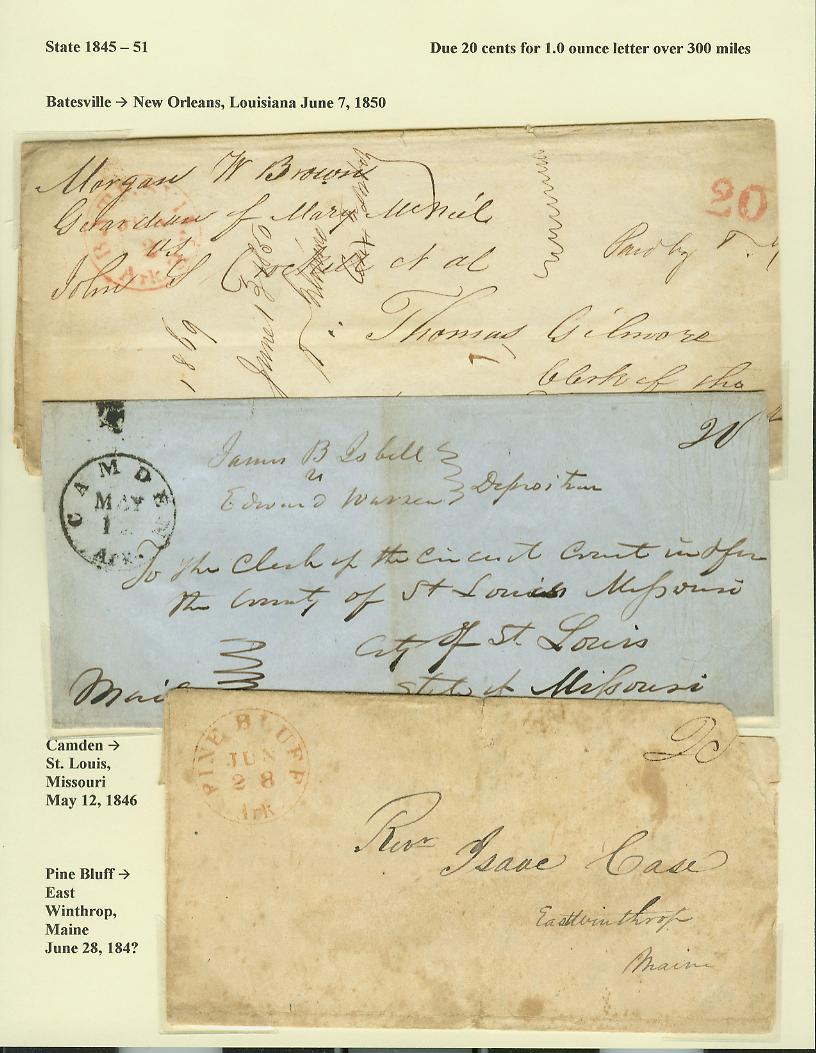 State 1845 – 51
Due 20 cents for 1.0 ounce letter over 300 miles
Batesville → New Orleans, Louisiana June 7, 1850
Morgan W Brown
Guardian of Mary McNeil
vs
John S Crockett et al
Ark
20
Paid by
1869
June 1850
Thomas Gilmore
Clerk of the
CAMDEN
MAY
12
Ark.
20
James B Isbell
vs
Edward Warren
Deposition
To the Clerk of the Circuit Court in & for
the County of St Louis Missouri
City of St. Louis
State of Missouri
Mail
Camden →
St. Louis,
Missouri
May 12, 1846
PINE BLUFF
JUN
28
Ark
20
Revr Isaac Case
Eastwinthrop
Maine
Pine Bluff →
East
Winthrop,
Maine
June 28, 184?